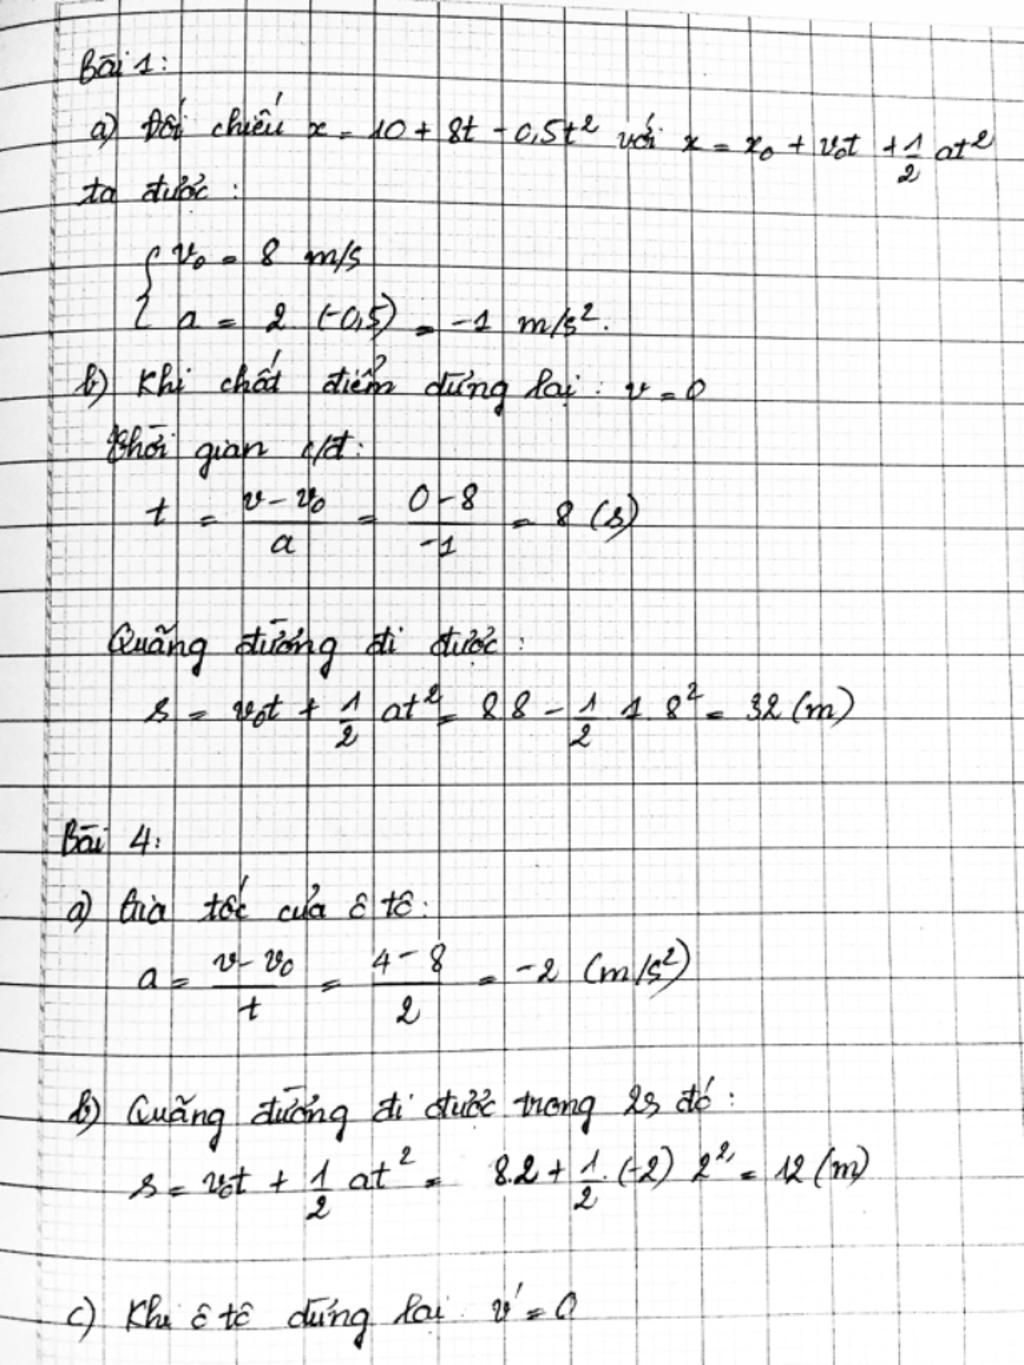 Bài 1:
a) Đối chiếu x = 10 + 8t - 0,5t² với x = x₀ + v₀t + 1/2 at²
ta được :
{ v₀ = 8 m/s
a = 2. (-0,5) = -1 m/s².
b) Khi chất điểm dừng lại : v = 0
Thời gian c/đ:
t = (v - v₀)/a = (0 - 8)/-1 = 8 (s)
Quãng đường đi được :
s = v₀t + 1/2 at² = 8.8 - 1/2 . 1. 8² = 32 (m)
Bài 4:
a) Gia tốc của ô tô:
a = (v - v₀)/t = (4 - 8)/2 = -2 (m/s²)
b) Quãng đường đi được trong 2s đó :
s = v₀t + 1/2 at² = 8.2 + 1/2 . (-2) 2² = 12 (m)
c) Khi ô tô dừng lại v' = 0